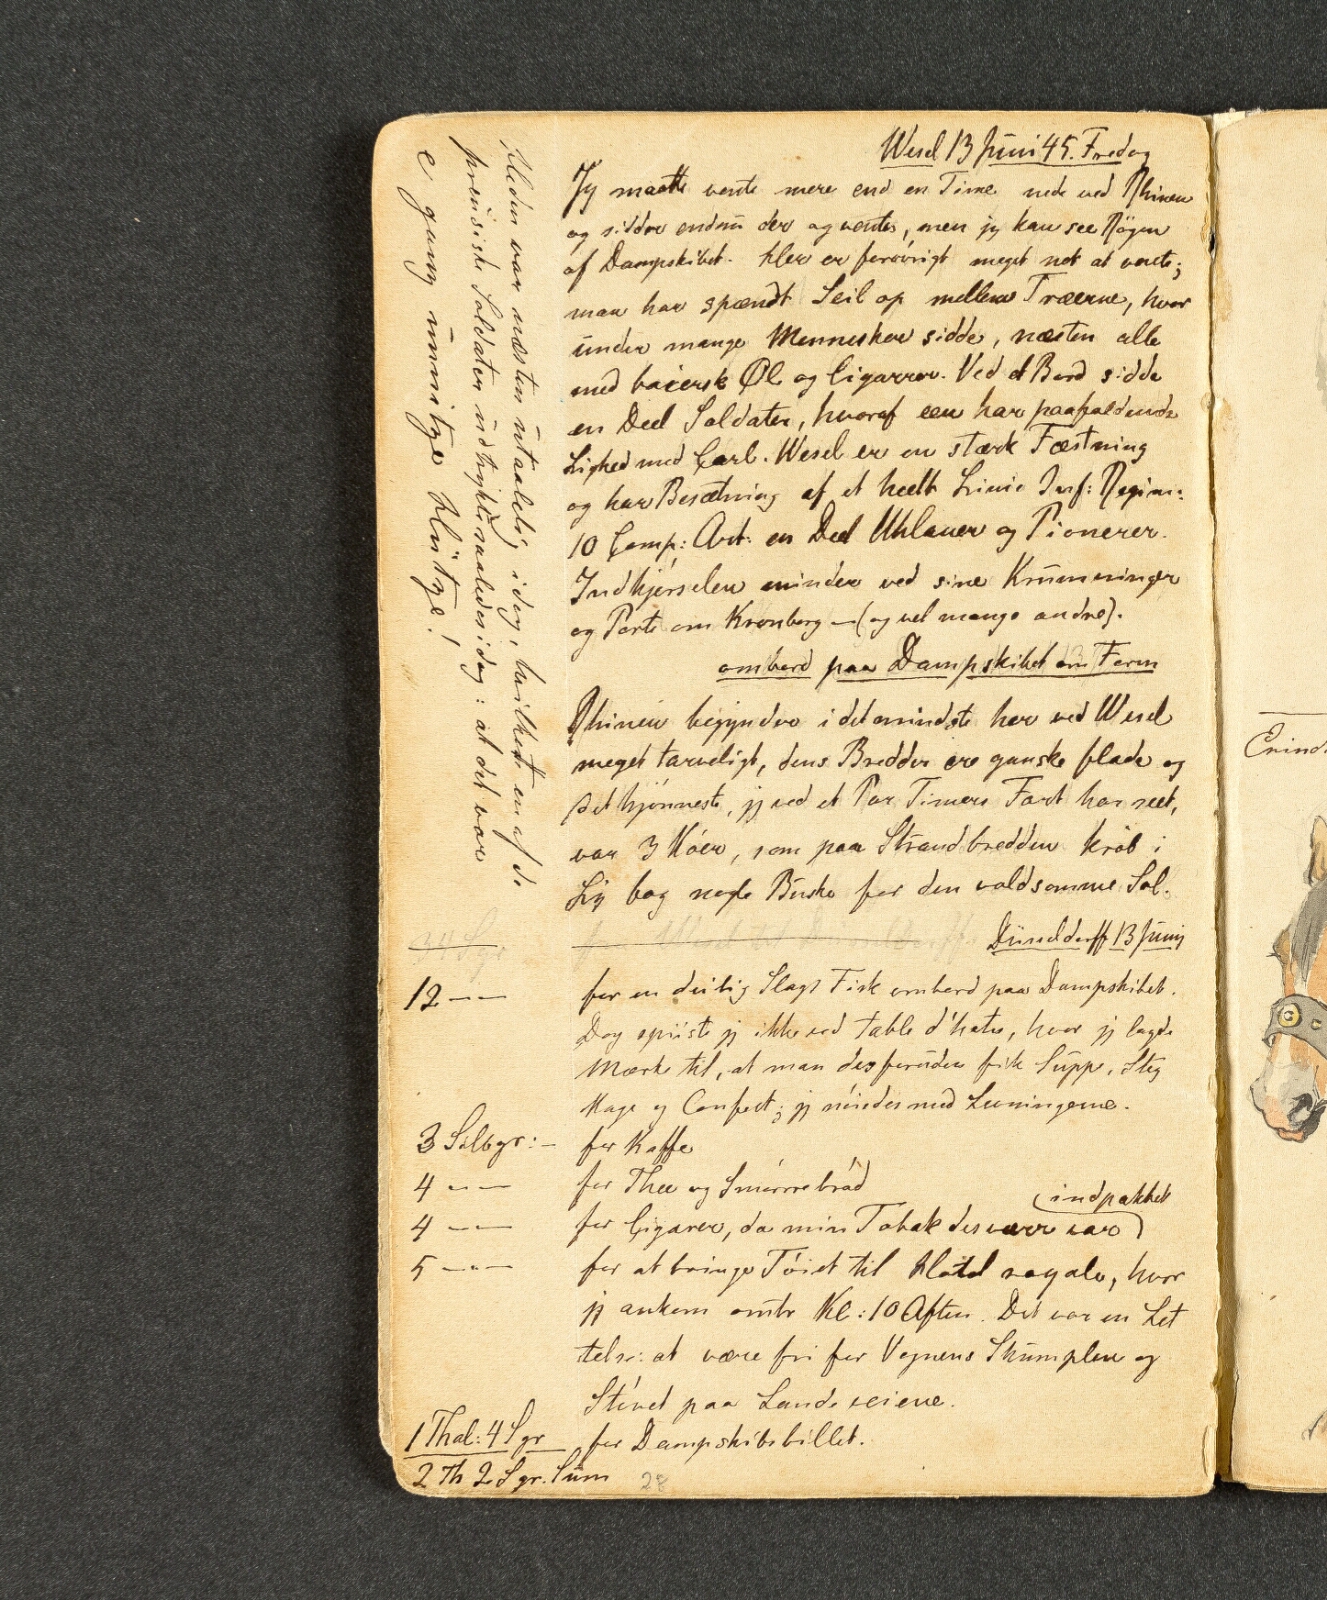 Wesel 13 Juni 45. Fredag
Jeg maatte vente mere end en Time nede ved Rhinen
og sidder endnu der og venter, men jeg kan see Røgen
af Dampskibet. Her er forövrigt meget net at vente;
man har spændt Seil op mellem Træerne, hvor
under mange Mennesker sidde, næsten alle
med baiersk Øl og Cigarrer. Ved et Bord sidde
en Deel Soldater, hvoraf een har paafaldende
Lighed med Carl. Wesel er en stærk Fæstning
og har Besætning af et heelt Linie Inf: Regim:
10 Comp: Art: en Deel Uhlaner og Pionerer.
Indkjörselen minder ved sine Krumninger
og Porte om Kronborg — (og vel mange andre).
ombord paa Dampskibet om Form
Rhinen begynder i det mindste her ved Wesel
meget tarveligt, dens Bredder ere ganske flade og
det kjönneste, jeg ved et Par Timers Fart har seet,
var 3 Köer, som paa Strandbredden kröb i
Ly bag nogle Buske for den voldsomme Sol.
Düsseldorff 13 Juni
12 — — for en deilig Slags Fisk ombord paa Dampskibet.
Dog spiiste jeg ikke ved table d'hote, hvor jeg lagde
Mærke til, at man desforuden fik Suppe, Steg
Kage og Confect; jeg nöiedes med Levningerne.
3 Silbgr: — for Kaffe
4 — — for Thee og Smörrebröd
4 — — for Cigarer, da min Tobak desværre var (indpakket
5 — — for at bringe Töiet til Hotel royale, hvor
jeg ankom omtr Kl: 10 Aften. Det var en Let
telse: at være fri for Vognens Skumplen og
Stövet paa Landeveiene.
1 Thal: 4 Sgr for Dampskibsbillet.
2 Th 2 Sgr. Sum
28
Heden var næsten utaalelig idag, hvilket en af de
preusiske Soldater udtrykte saaledes idag: at det var
e gang unnitze Hütze!
Erind.